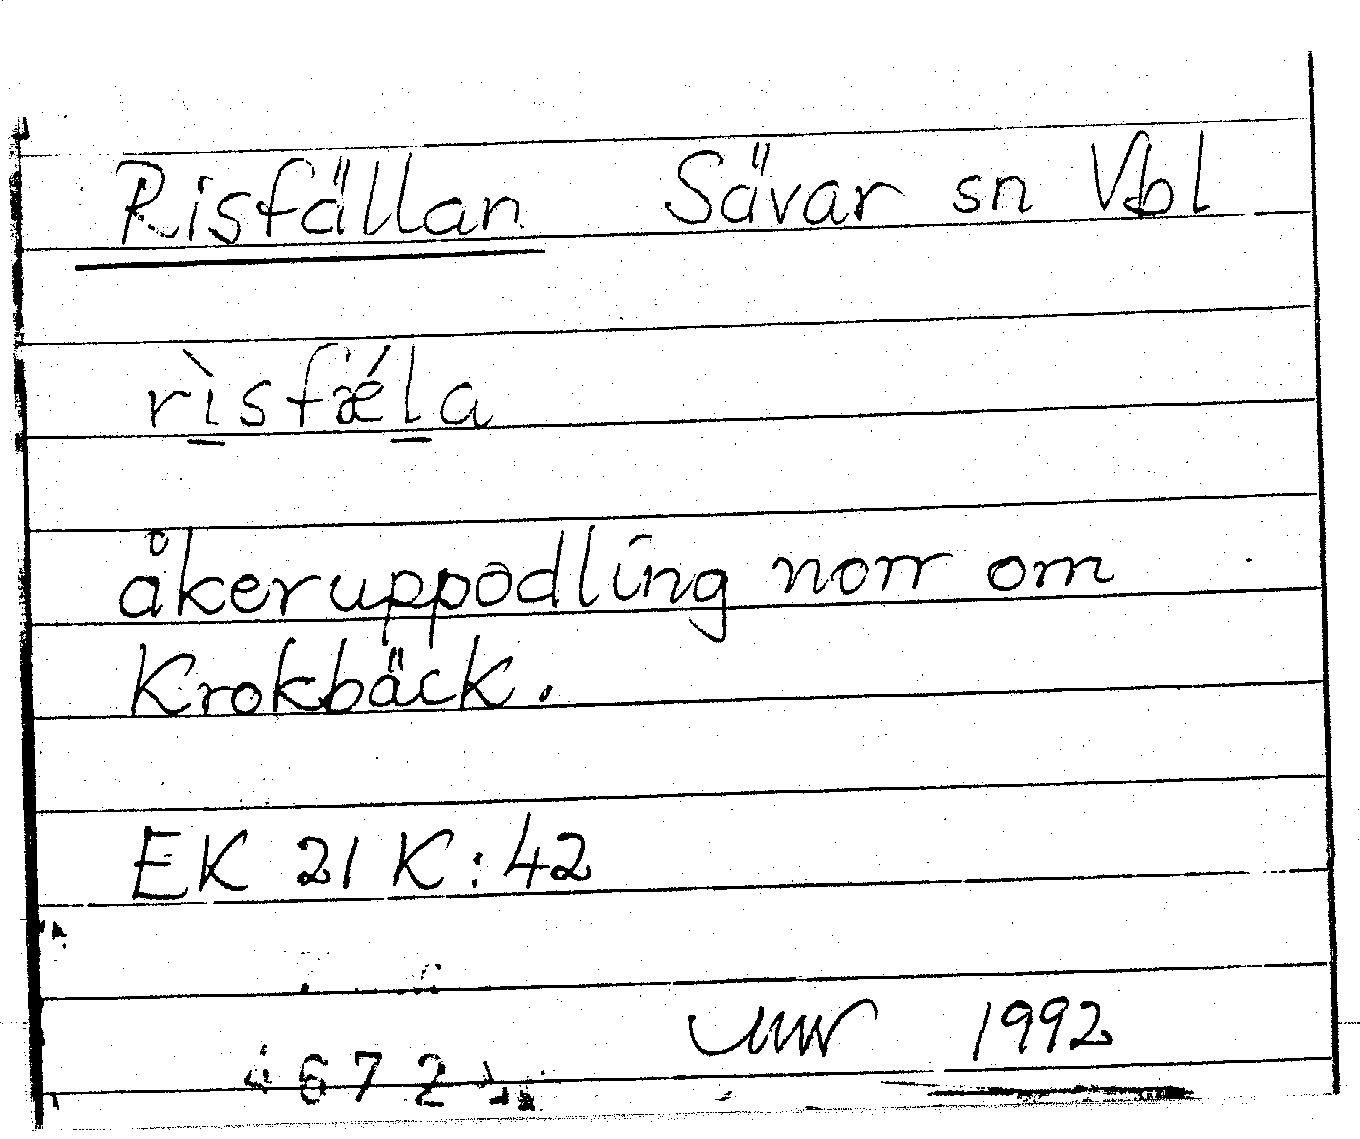 Risfällan Sävar sn Vbl
rìsfǽla
åkeruppodling norr om
Krokbäck.
EK 21 K:42
1992
4672